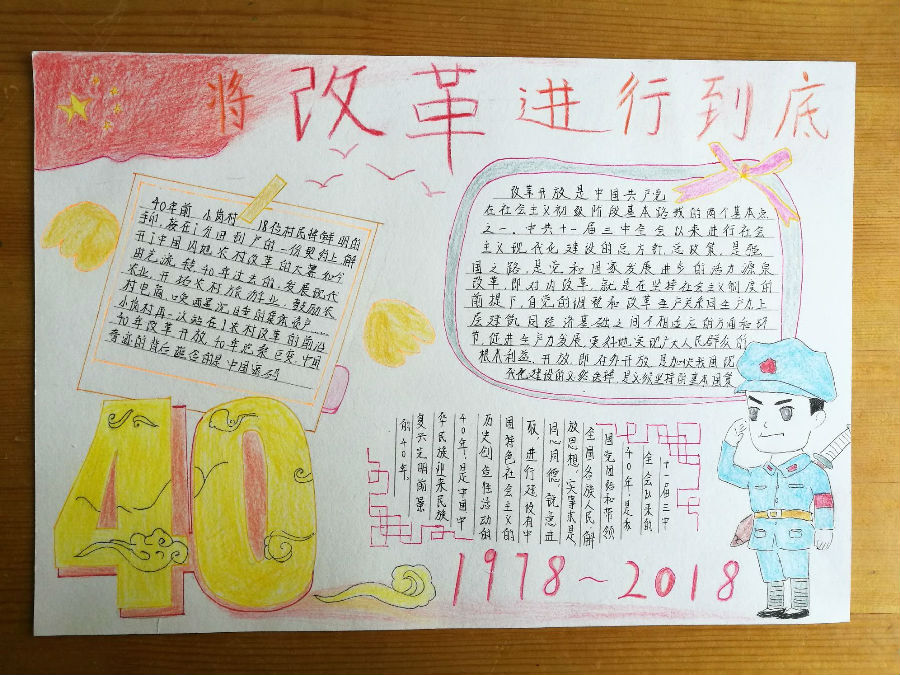 将改革进行到底
40年前 小岗村 18位村民将鲜明的
手印,按在了分田到户的一份契约上,解
开了中国内地农村改革的大幕。如今
由老流转,40年过去的,发展现代
农业,开场农村旅游业,鼓励农
村电商,
小岗村再一次站在了农村改革的前沿
40年改革开放,40年沧桑巨变,中国
奇迹的背后蕴含的是中国密码
改革开放是中国共产党
在社会主义初级阶段基本路线的两个基本点
之一。中共十一届三中全会以来进行社会
主义现代化建设的总方针,总政策,是强
国之路,是党和国家发展进步的活力源泉
改革,即对内改革,就是在坚持社会主义制度的
前提下,自觉的调整和改革生产关系同生产力上
层建筑同经济基础之间不相适应的方面和环
节,促进生产力发展,更好地实现广大人民群众的
根本利益。开放,即对外开放,是加快我国现
代化建设的必然选择,是必须坚持的基本国策
十一届三中
全会以来的
40年,是我
国党团结和带领
全国各族人民,解
放思想,实事求是
同心同德,锐意进
取,进行建设有中
国特色社会主义的
历史创造性活动的
40年!是中国中
华民族迎来民族
复兴光明前景
的40年。
40
1978~2018